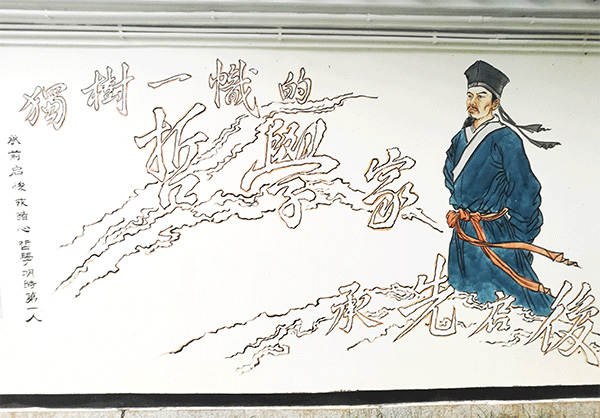 獨樹一幟的
哲學家
承先启後
承前启後心哲學明時第一人